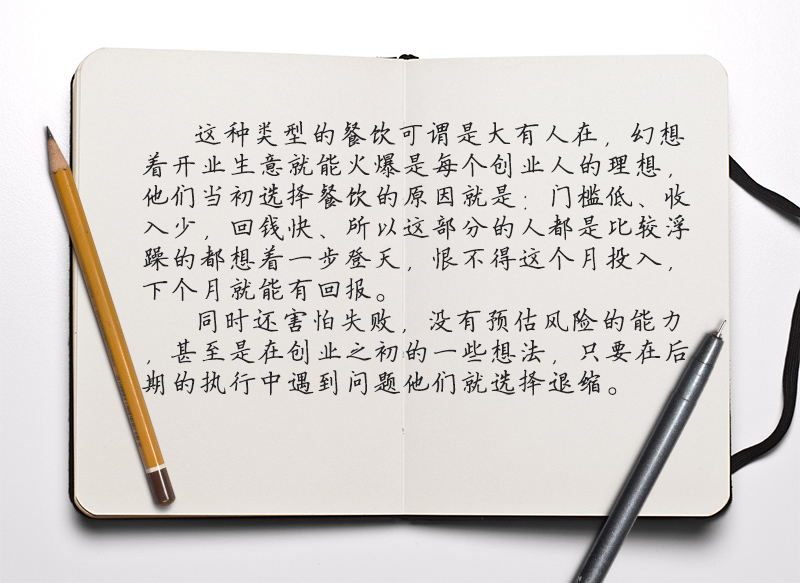 这种类型的餐饮可谓是大有人在，幻想
着开业生意就能火爆是每个创业人的理想，
他们当初选择餐饮的原因就是：门槛低、收
入少，回钱快、所以这部分的人都是比较浮
躁的都想着一步登天，恨不得这个月投入，
下个月就能有回报。
同时还害怕失败，没有预估风险的能力
，甚至是在创业之初的一些想法，只要在后
期的执行中遇到问题他们就选择退缩。